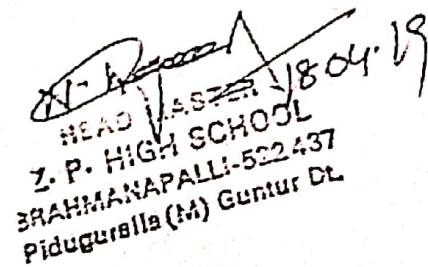 18.04.19
HEAD MASTER
Z. P. HIGH SCHOOL
BRAHMANAPALLI-522437
Piduguralla (M) Guntur Dt.